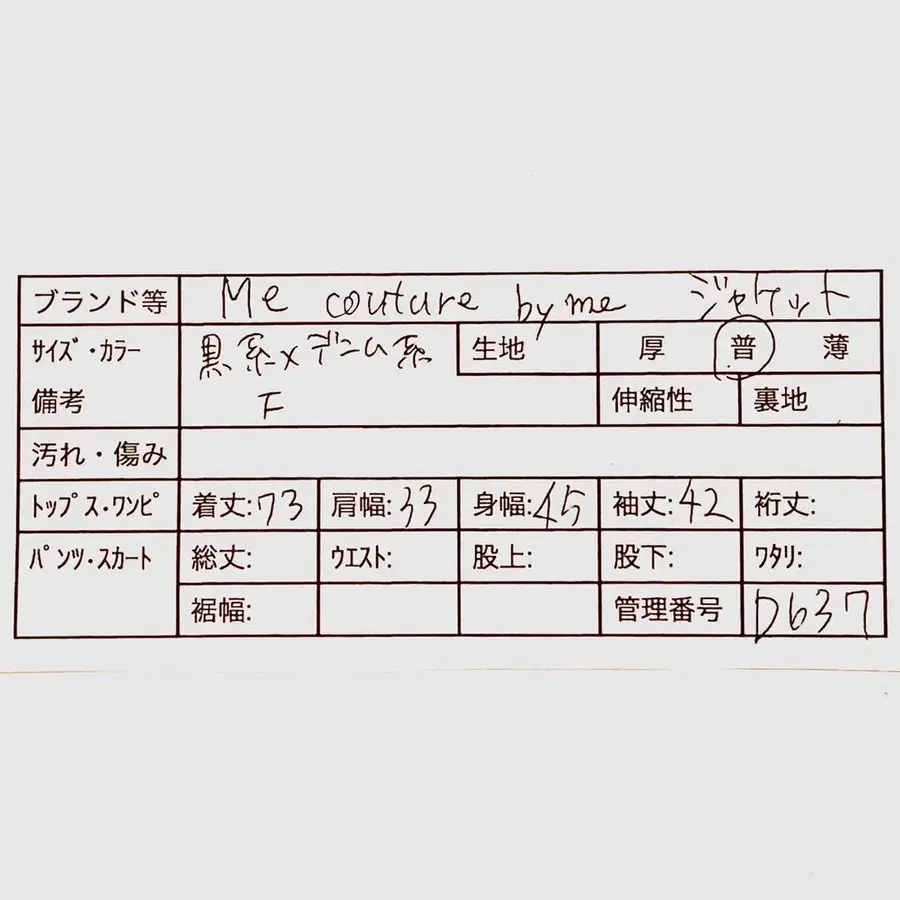 ブランド等 Me couture by me ジャケット
サイズ・カラー 黒系×デニム系 生地 厚 普 薄
備考 F 伸縮性 裏地
汚れ・傷み
トップス・ワンピ 着丈:73 肩幅:33 身幅:45 袖丈:42 裄丈:
パンツ・スカート 総丈: ウエスト: 股上: 股下: ワタリ:
裾幅: 管理番号 D637